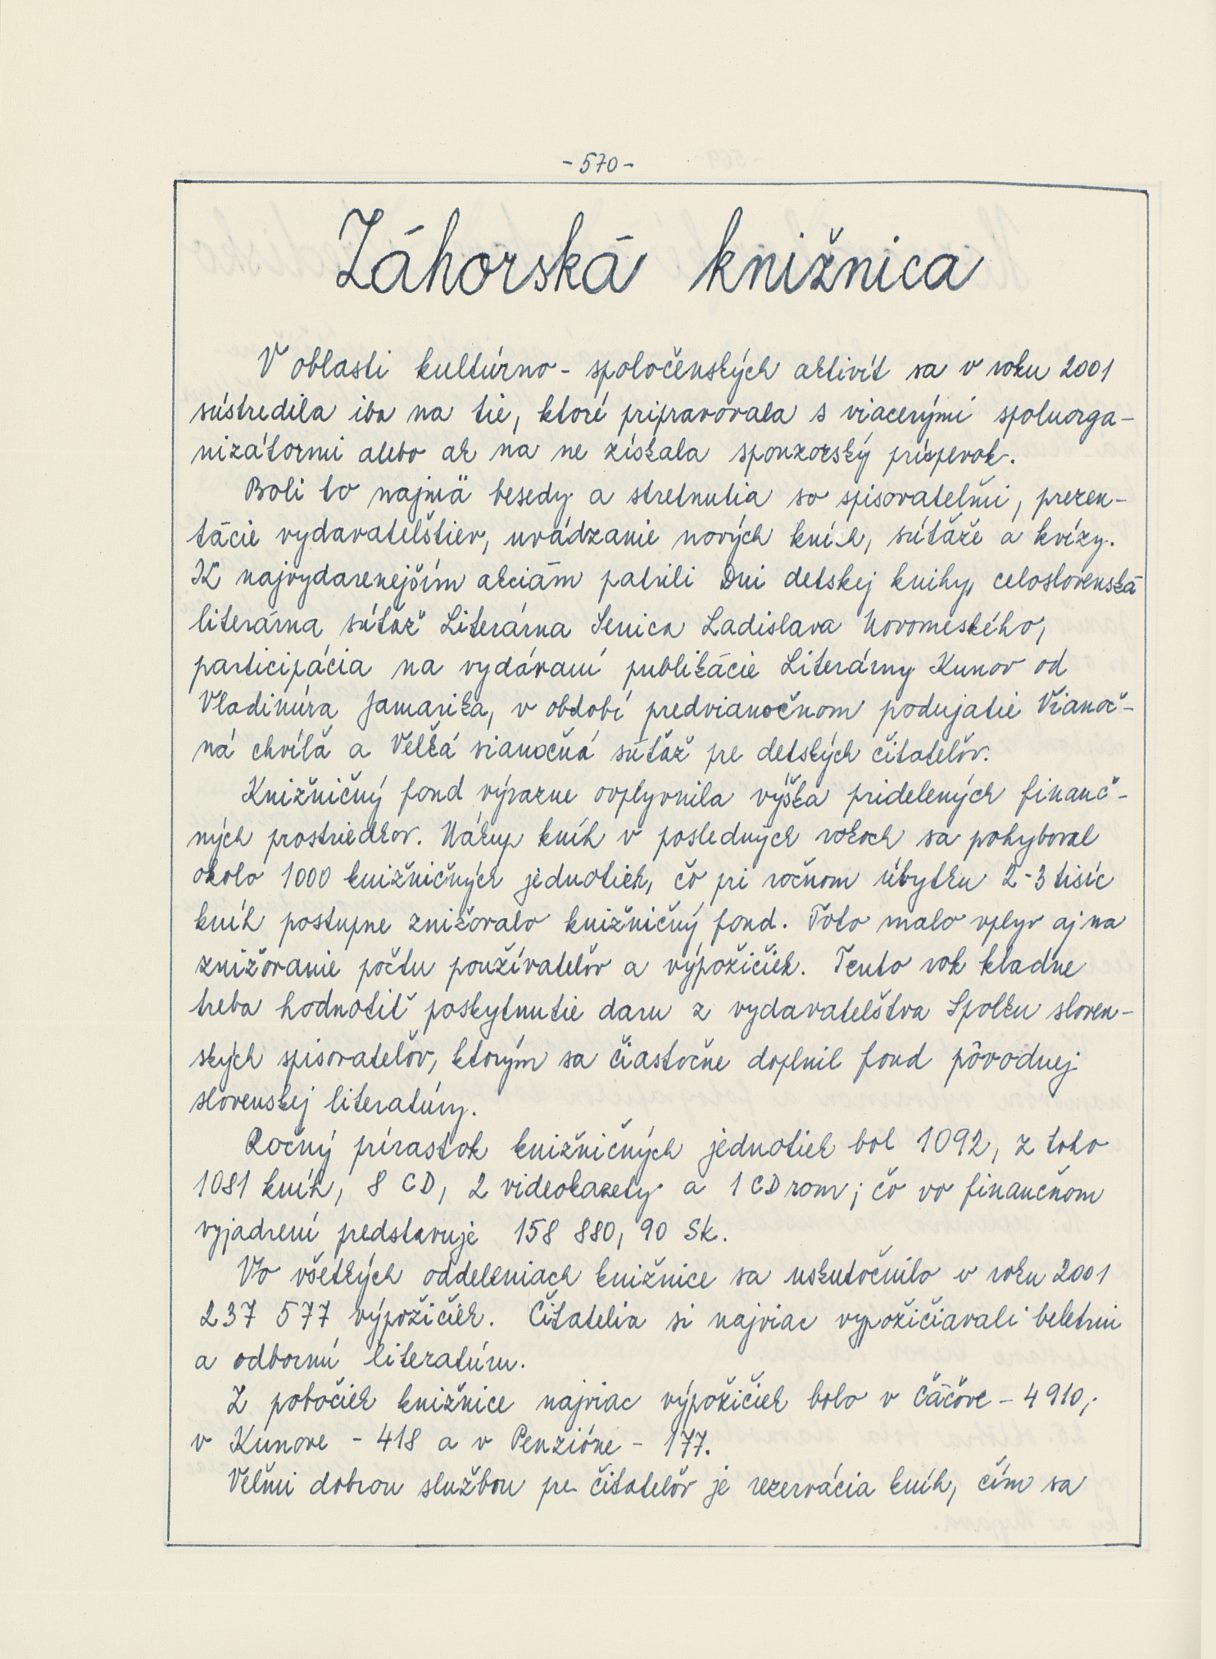 -570-
Záhorská knižnica
V oblasti kultúrno-spoločenských aktivít sa v roku 2001
sústredila iba na tie, ktoré pripravovala s viacerými spoluorga-
nizátormi alebo ak na ne získala sponzorský príspevok.
Boli to najmä besedy a stretnutia so spisovateľmi, prezen-
tácie vydavateľstiev, uvádzanie nových kníh, súťaže a kvízy.
K najvydarenejším akciám patrili Dni detskej knihy, celoslovenská
literárna súťaž Literárna Senica Ladislava Novomeského,
participácia na vydávaní publikácie Literárny Kunov od
Vladimíra Jamárika, v období predvianočnom podujatie Vianoč-
ná chvíľa a Veľká vianočná súťaž pre detských čitateľov.
Knižničný fond výrazne ovplyvnila výška pridelených finanč-
ných prostriedkov. Nákup kníh v posledných rokoch sa pohyboval
okolo 1000 knižničných jednotiek, čo pri ročnom úbytku 2-3 tisíc
kníh postupne znižovalo knižničný fond. Toto malo vplyv aj na
znižovanie počtu používateľov a výpožičiek. Tento rok kladne
treba hodnotiť poskytnutie daru z vydavateľstva Spolku sloven-
ských spisovateľov, ktorým sa čiastočne doplnil fond pôvodnej
slovenskej literatúry.
Ročný prírastok knižničných jednotiek bol 1092, z toho
1081 kníh, 8 CD, 2 videokazety a 1 CD rom; čo vo finančnom
vyjadrení predstavuje 158 880,90 Sk.
Vo všetkých oddeleniach knižnice sa uskutočnilo v roku 2001
237 577 výpožičiek. Čitatelia si najviac vypožičiavali beletriu
a odbornú literatúru.
Z pobočiek knižnice najviac výpožičiek bolo v Čáčove - 4910,
v Kunove - 418 a v Penzióne - 177.
Veľmi dobrou službou pre čitateľov je rezervácia kníh, čím sa